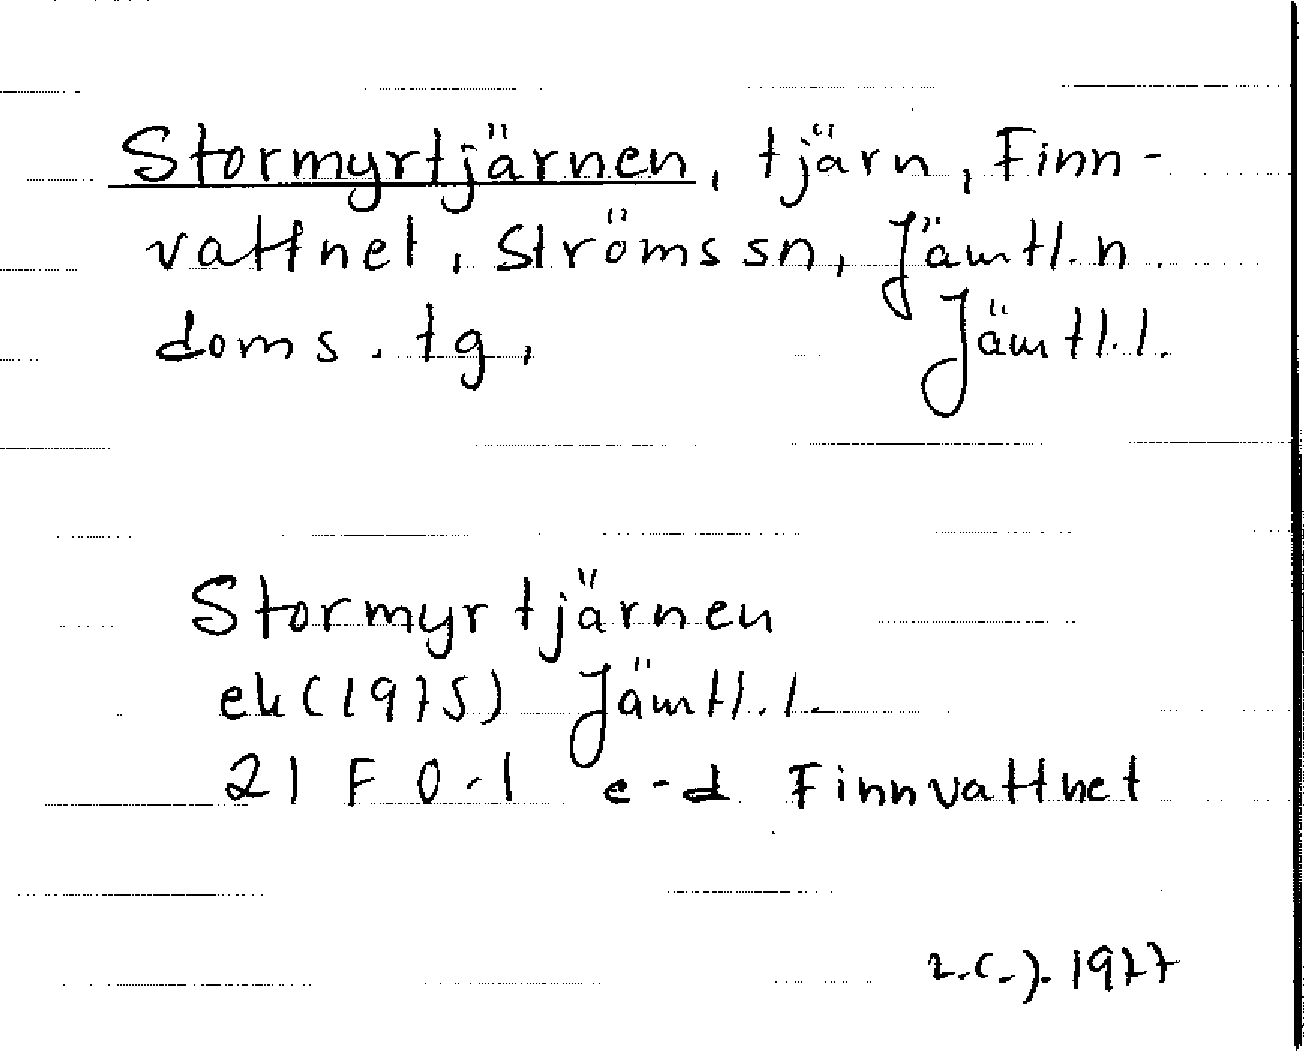 Stormyrtjärnen, tjärn, Finn-
vattnet, Ströms sn, Jämtl. n.
doms. tg, Jämtl.l.
Stormyrtjärnen
ek (1975) Jämtl.l.
21 F 0-1 c-d Finnvattnet
1977